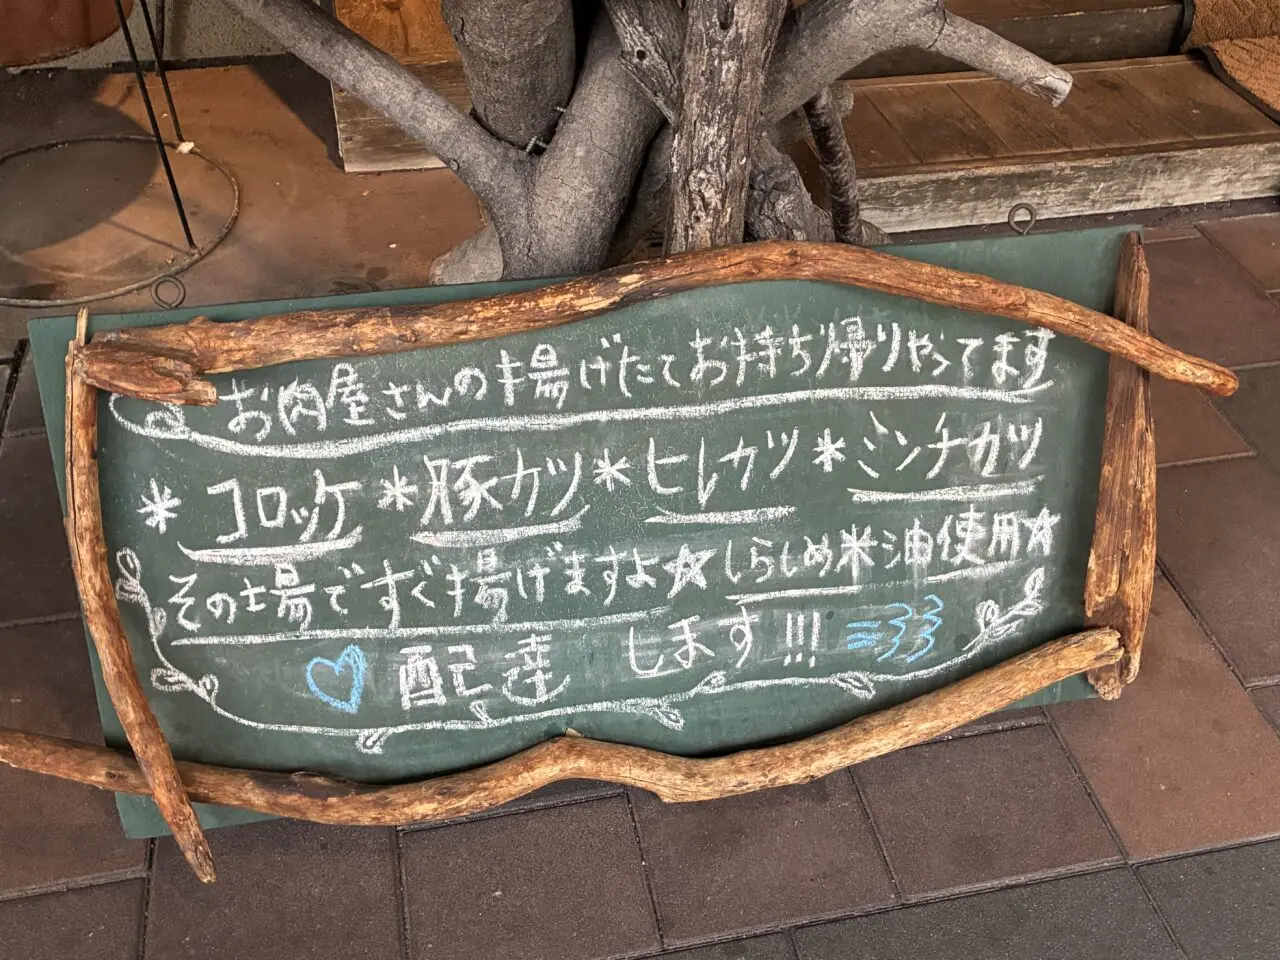 お肉屋さんの揚げたてお持ち帰りやってます
*コロッケ*豚カツ*ヒレカツ*ミンチカツ
その場ですぐ揚げますよ☆しらしめ米油使用☆
♡配達します!!!